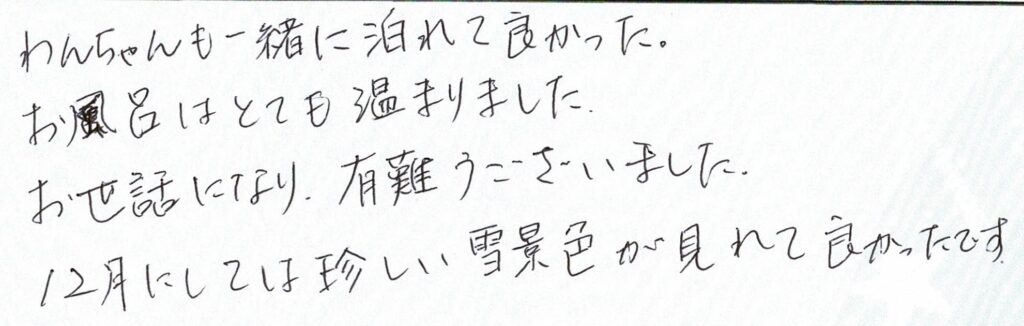 わんちゃんも一緒に泊れて良かった。
お風呂はとても温まりました.
お世話になり.有難うございました.
12月にしては珍しい雪景色が見れて良かったです